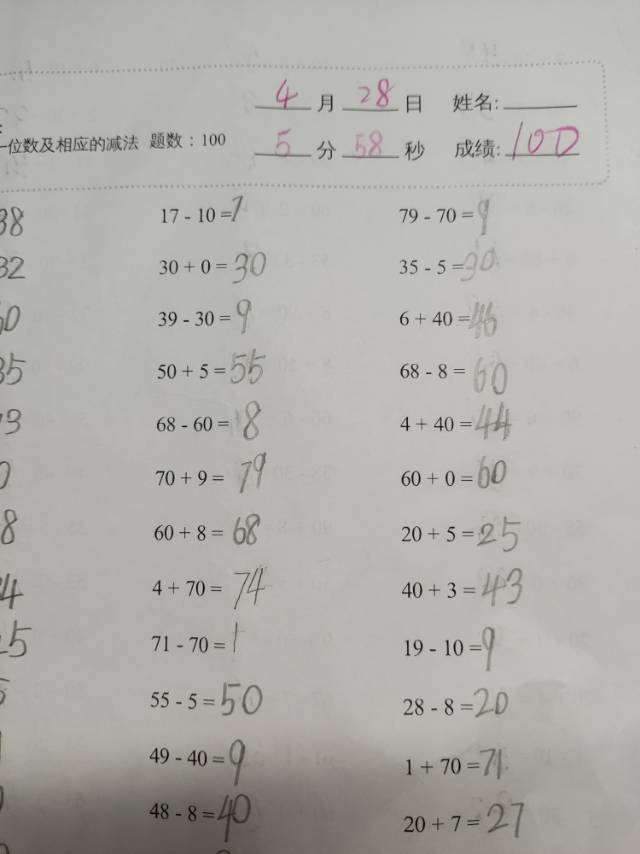 4 月 28 日 姓名:
一位数及相应的减法 题数：100
5 分 58 秒 成绩: 100
38 17 - 10 = 7 79 - 70 = 9
32 30 + 0 = 30 35 - 5 = 30
39 - 30 = 9 6 + 40 = 46
35 50 + 5 = 55 68 - 8 = 60
68 - 60 = 8 4 + 40 = 44
70 + 9 = 79 60 + 0 = 60
8 60 + 8 = 68 20 + 5 = 25
4 + 70 = 74 40 + 3 = 43
71 - 70 = 1 19 - 10 = 9
55 - 5 = 50 28 - 8 = 20
49 - 40 = 9 1 + 70 = 71
48 - 8 = 40 20 + 7 = 27